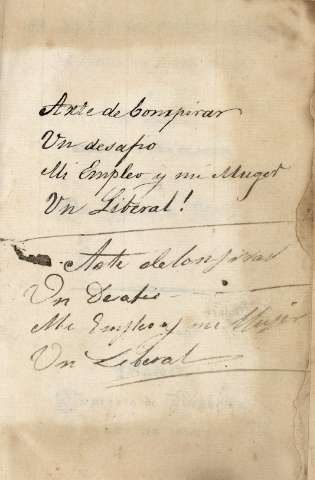 Arte de Conspirar
Un desafio
Mi Empleo y mi Muger
Un Liberal!
Arte de Conspirar
Un Desafio
Mi Empleo y mi Muger
Un Liberal